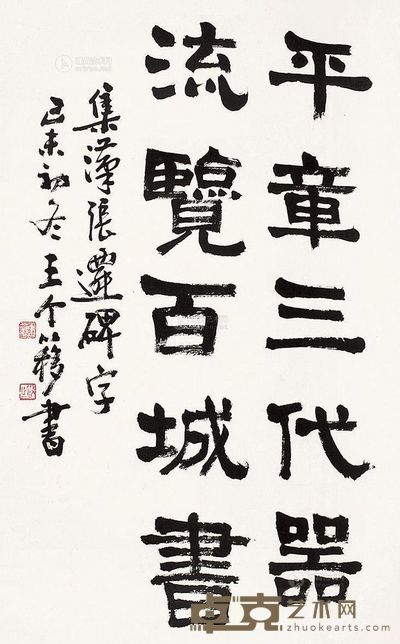 平章三代器
流覽百城書
集漢張遷碑字
己未初冬王个簃書
卓克艺术网
zhuokearts.com